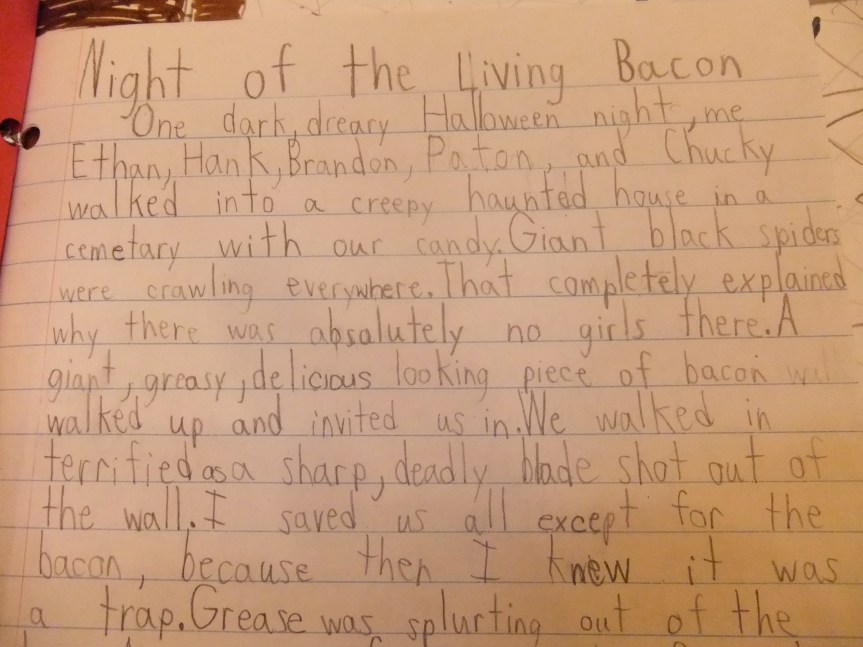 Night of the Living Bacon
One dark, dreary Halloween night, me
Ethan, Hank, Brandon, Paton, and Chucky
walked into a creepy haunted house in a
cemetary with our candy. Giant black spiders
were crawling everywhere. That completely explained
why there was absalutely no girls there. A
giant, greasy, delicious looking piece of bacon
walked up and invited us in. We walked in
terrified as a sharp, deadly blade shot out of
the wall. I saved us all except for the
bacon, because then I knew it was
a trap. Grease was splurting out of the